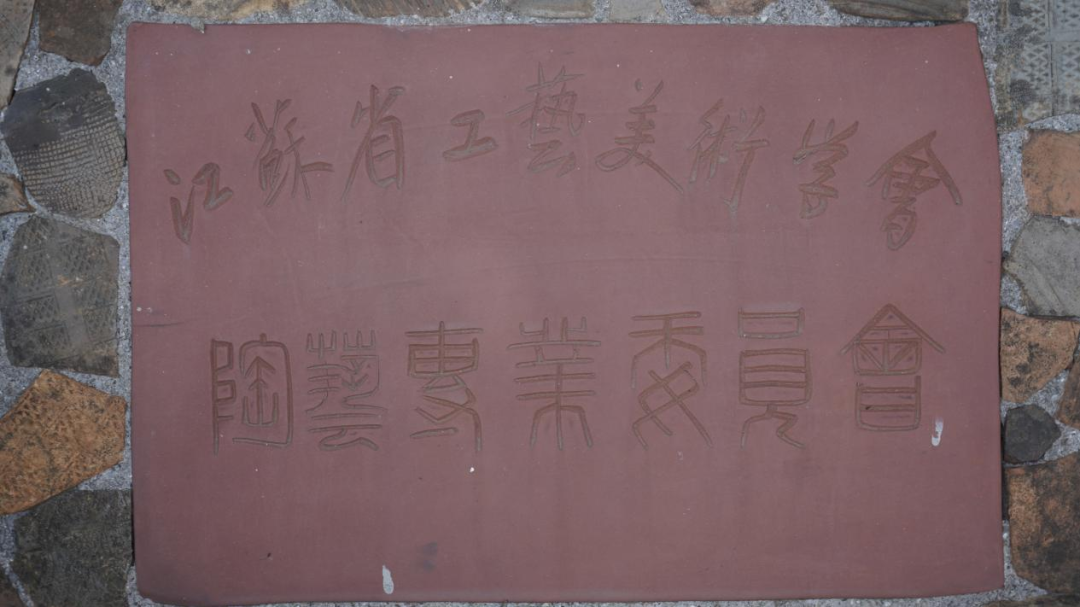 江蘇省工藝美術学會
陶藝專業委員會